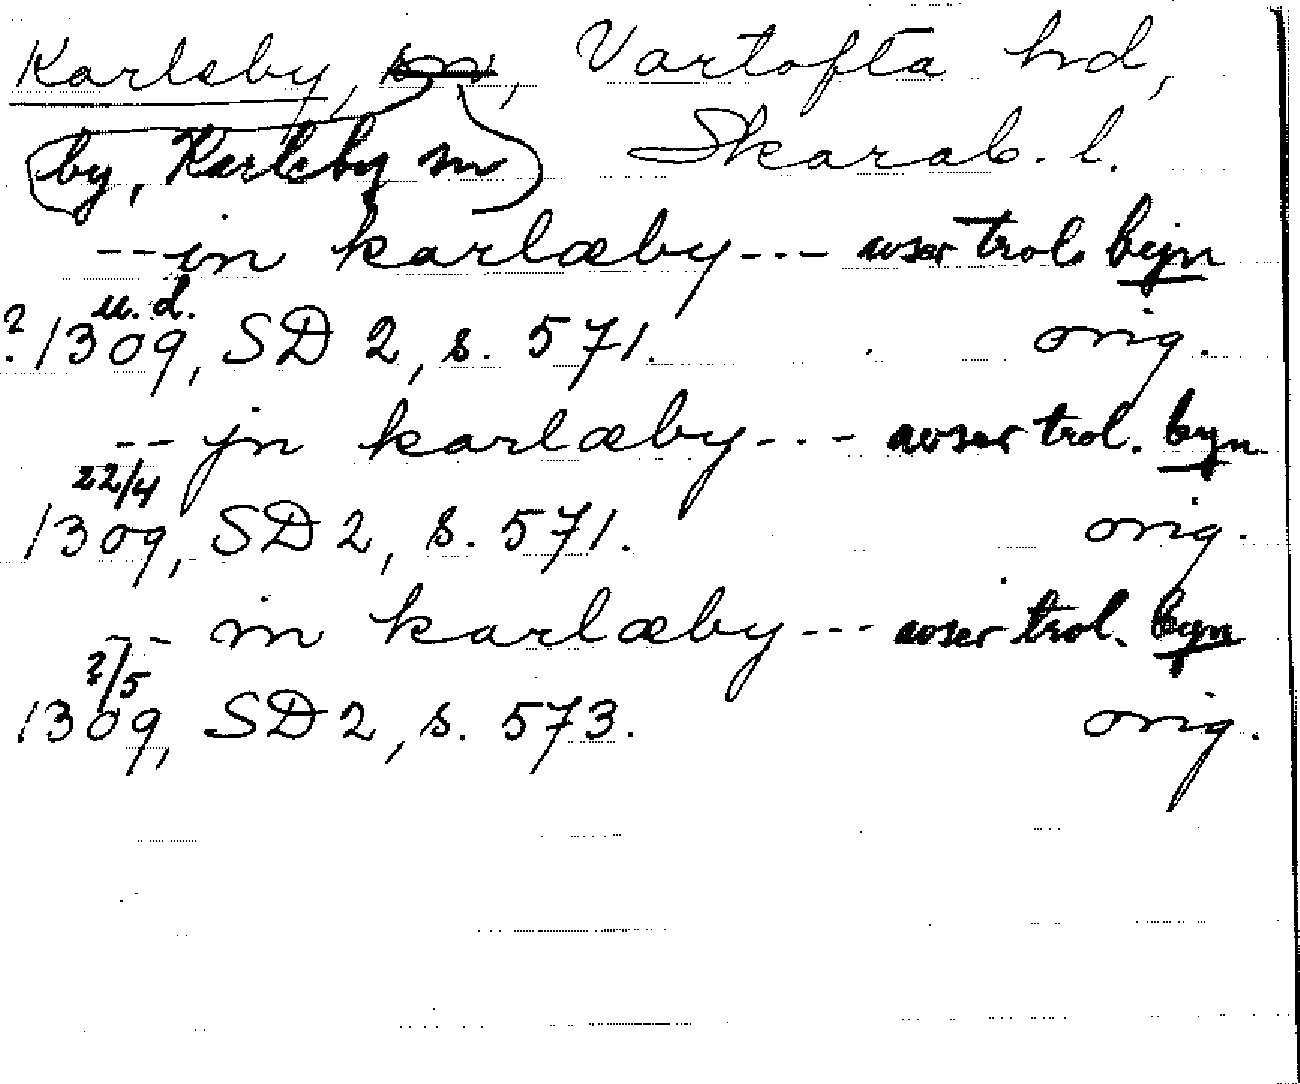 Karleby, sn, Vartofta hd,
by, Karleby sn Skarab. l.
-- in karlæby --- avser trol. byn
u. d.
? 1309, SD 2, s. 571. orig.
-- jn karlæby --- avser trol. byn
22/4
1309, SD 2, s. 571. orig.
-- in karlæby --- avser trol. byn
2/5
1309, SD 2, s. 573. orig.